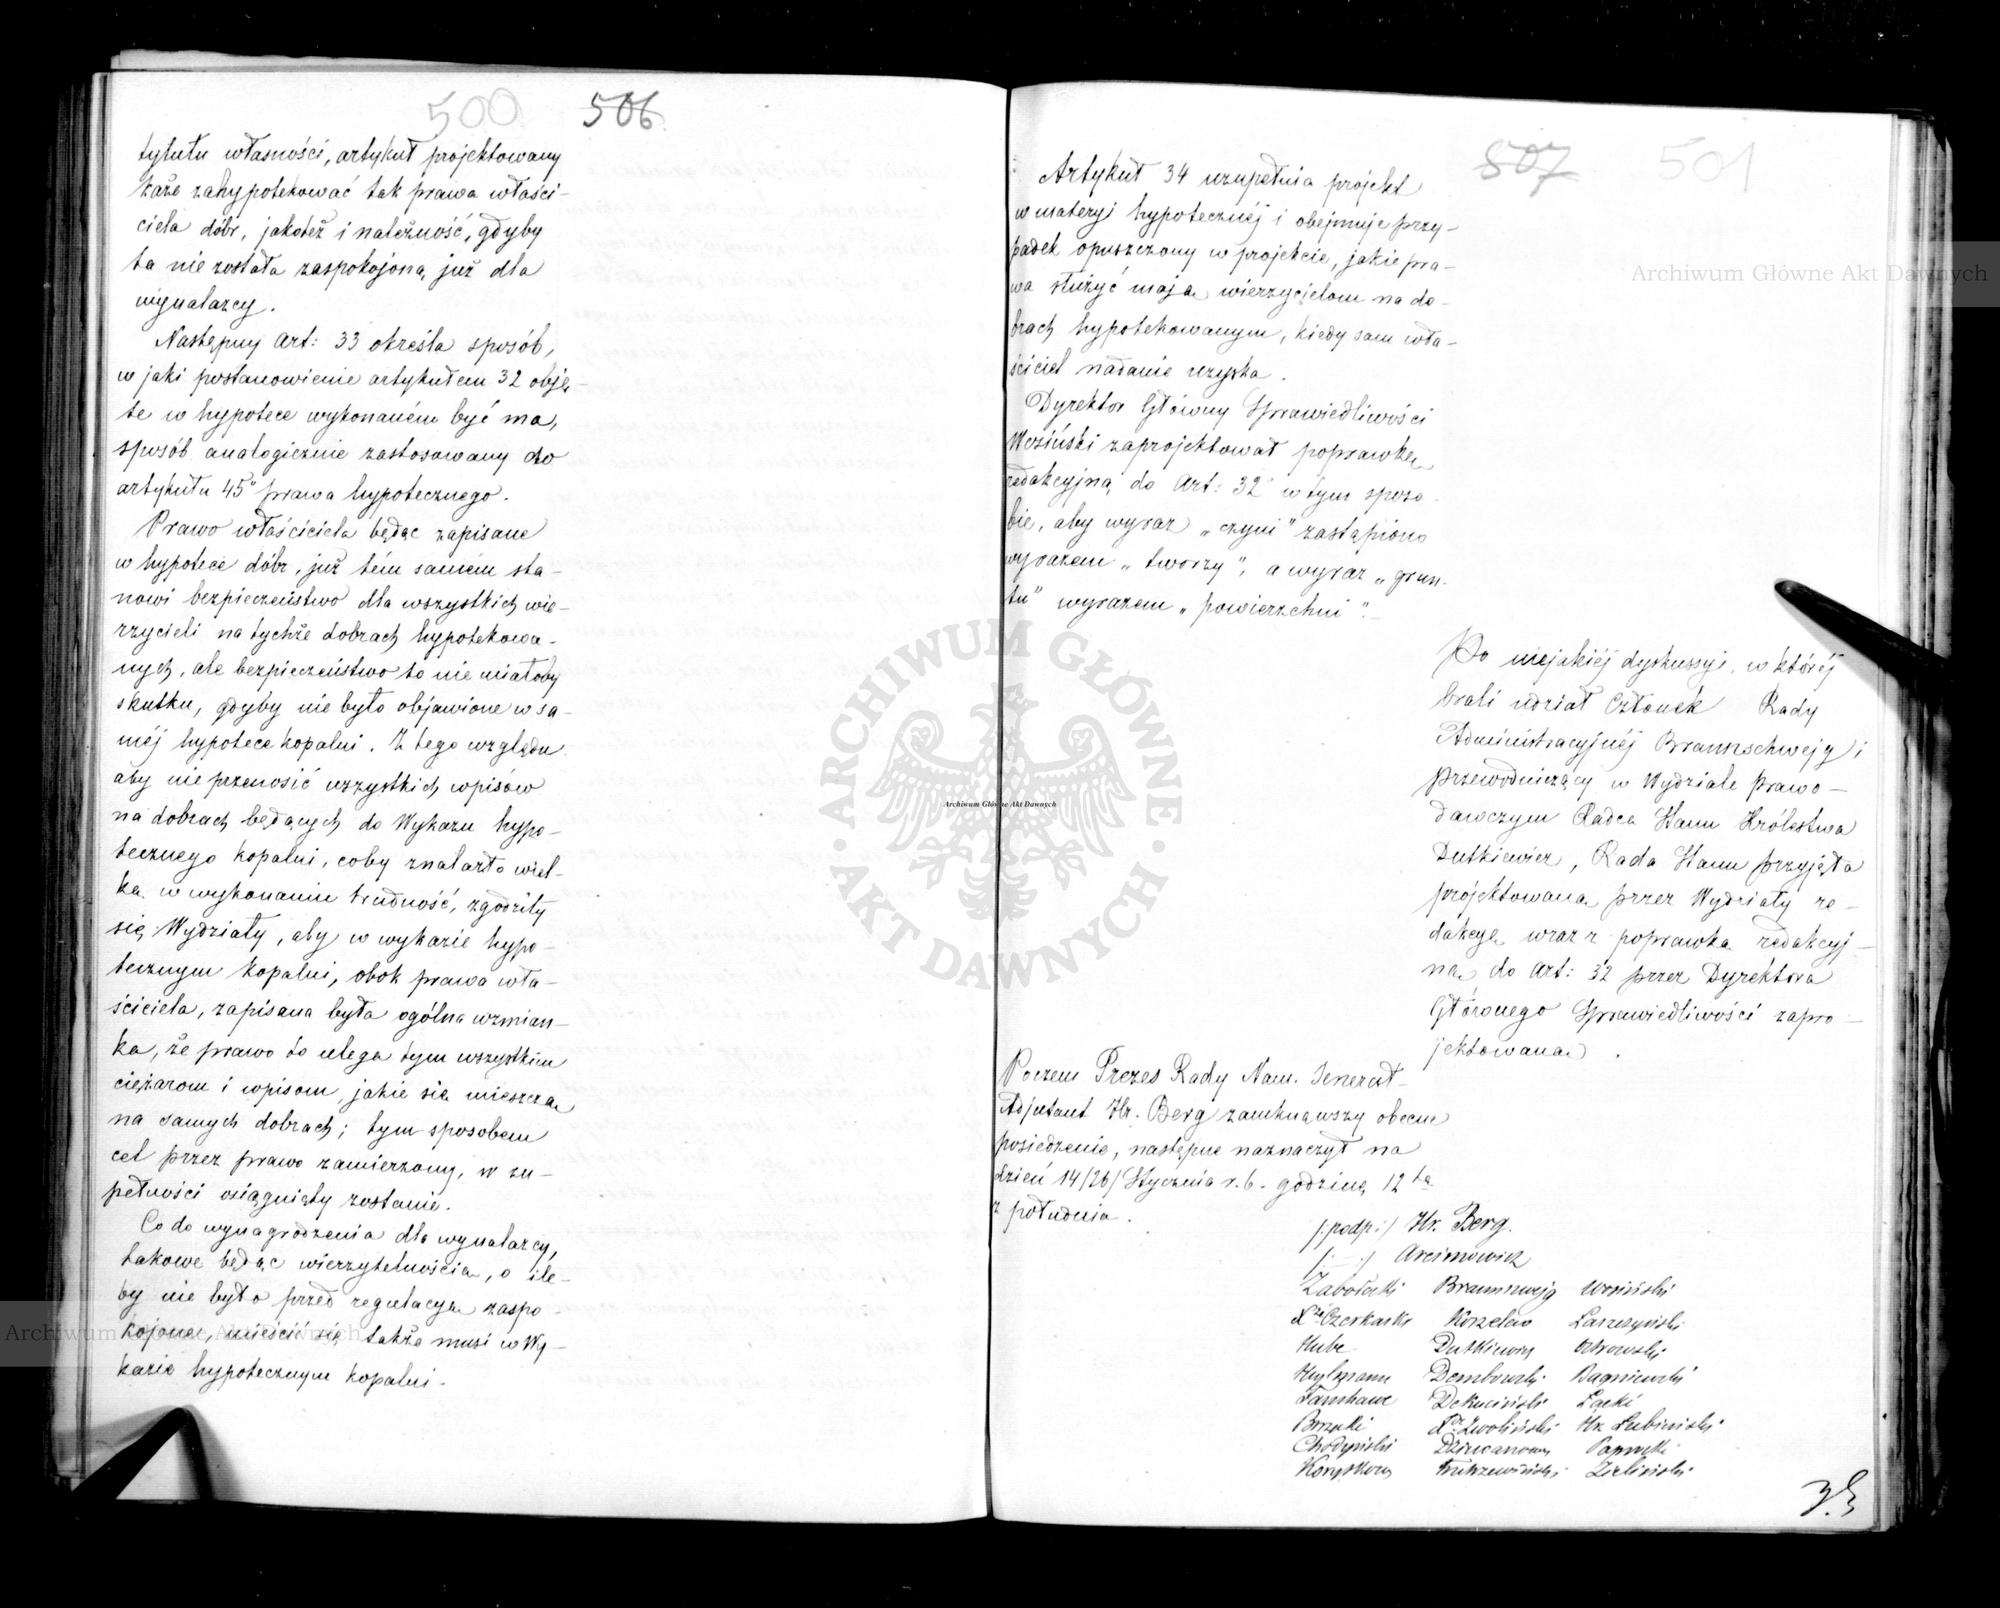 500 506
tytułu własności, artykuł projektowany
każe zahypotekować tak prawa właści-
ciela dóbr, jakoteż i należność, gdyby
ta nie została zaspokojoną już dla
wynalazcy.
Następny Art: 33 określa sposób,
w jaki postanowienie artykułem 32 obję-
te w hypotece wykonaném być ma,
sposób analogicznie zastosowany do
artykułu 45° prawa hypotecznego.
Prawo właściciela będąc zapisane
w hypotece dóbr, już tém samém sta-
nowi bezpieczeństwo dla wszystkich wie-
rzycieli na tychże dobrach hypotekowa-
nych, ale bezpieczeństwo to nie miałoby
skutku, gdyby nie było objawione w sa-
méj hypotece kopalni. Z tego względu
aby nie przenosić wszystkich wpisów
na dobrach będących do Wykazu hypo-
tecznego kopalni, coby znalazło wiel-
ką w wykonaniu trudność, zgodziły
się Wydziały, aby w wykazie hypo-
tecznym kopalni, obok prawa wła-
ściciela, zapisana była ogólna wzmian-
ka, że prawo to ulega tym wszystkim
ciężarom i wpisom, jakie się mieszczą
na samych dobrach; tym sposobem
cel przez prawo zamierzony, w zu-
pełności osiągnięty zostanie.
Co do wynagrodzenia dla wynalazcy,
takowe będąc wierzytelnością, o ile-
by nie było przed regulacyą zaspo-
kojone, mieścić się także musi w Wy-
kazie hypotecznym kopalni.
507 501
Artykuł 34 uzupełnia projekt
w materyi hypotecznéj i obejmuje przy-
padek opuszczony w projekcie, jakie pra-
wa służyć mają wierzycielom na do-
brach hypotekowanym, kiedy sam wła-
ściciel nadanie uzyska.
Dyrektor Główny Sprawiedliwości
Wosiński zaprojektował poprawkę
redakcyjną do Art: 32 w tym sposo-
bie, aby wyraz „czyni" zastąpiono
wyrazem „tworzy", a wyraz „grun-
tu" wyrazem „powierzchni".-
Po niejakiéj dyskussyi, w któréj
brali udział Członek Rady
Administracyjnéj Braunschwejg i
Przewodniczący w Wydziale Prawo-
dawczym Radca Stanu Królestwa
Dutkiewicz, Rada Stanu przyjęła
projektowaną przez Wydziały re-
dakcyę wraz z poprawką redakcyj-
ną do Art: 32 przez Dyrektora
Głównego Sprawiedliwości zapro-
jektowaną.
Poczem Prezes Rady Nam. Jenerał-
Adjutant Hr. Berg zamknąwszy obecne
posiedzenie, następne naznaczył na
dzień 14/26/ Stycznia r. b. godzinę 12tą
z południa.
/:podp:/ Hr. Berg.
/: — :/ Arcimowicz
Zabołocki Braunszwejg Wosiński
Xże Czerkaski Koszelew Łaszczyński
Hube Dutkiewicz Ostrowski
Heylmann Dembowski Bagniewski
Fanshawe Dekuciński Łącki
Brzeski Xdz Zwoliński Hr. Łubieński
Chodyński Dziewanowski Paprocki
Korytkowski Trubszewiński Zieliński
Archiwum Główne Akt Dawnych
Archiwum Główne Akt Dawnych
Archiwum Główne Akt Dawnych
ARCHIWUM GŁÓWNE · AKT DAWNYCH ·